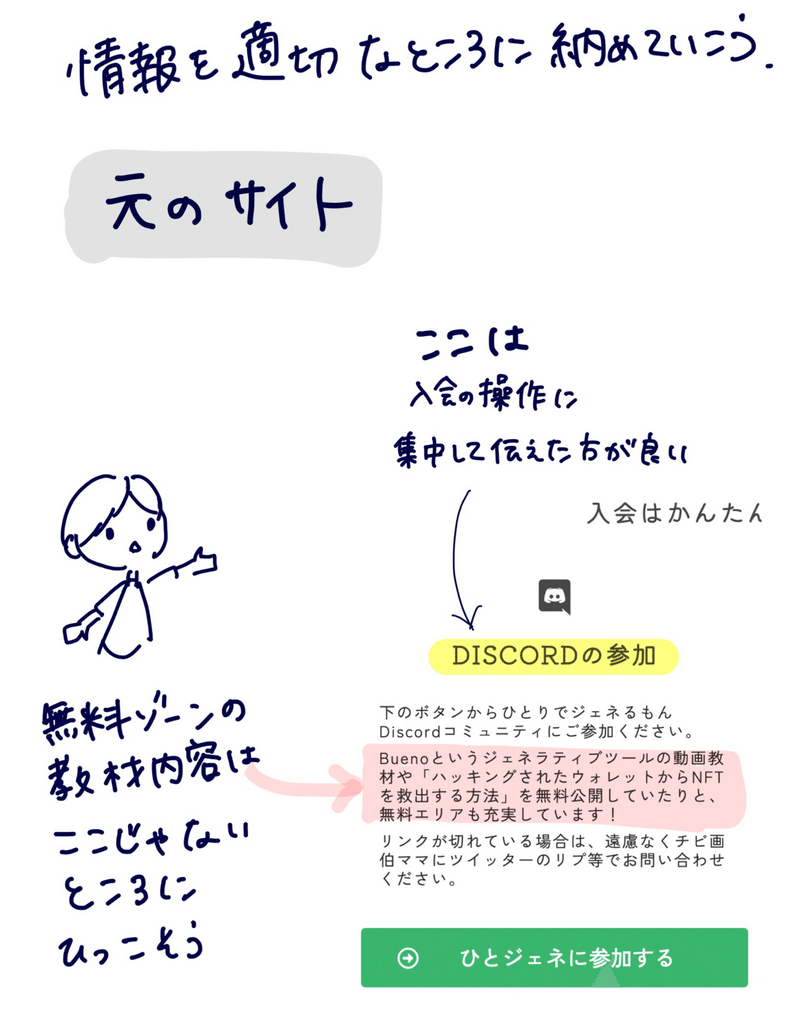 情報を適切なところに納めていこう.
元のサイト
ここは
入会の操作に
集中して伝えた方が良い
入会はかんたん
DISCORDの参加
下のボタンからひとりでジェネるもん
Discordコミュニティにご参加ください。
Buenoというジェネラティブツールの動画教
材や「ハッキングされたウォレットからNFT
を救出する方法」を無料公開していたりと、
無料エリアも充実しています！
リンクが切れている場合は、遠慮なくチビ画
伯ママにツイッターのリプ等でお問い合わせ
ください。
無料ゾーンの
教材内容は
ここじゃない
ところに
ひっこそう
ひとジェネに参加する